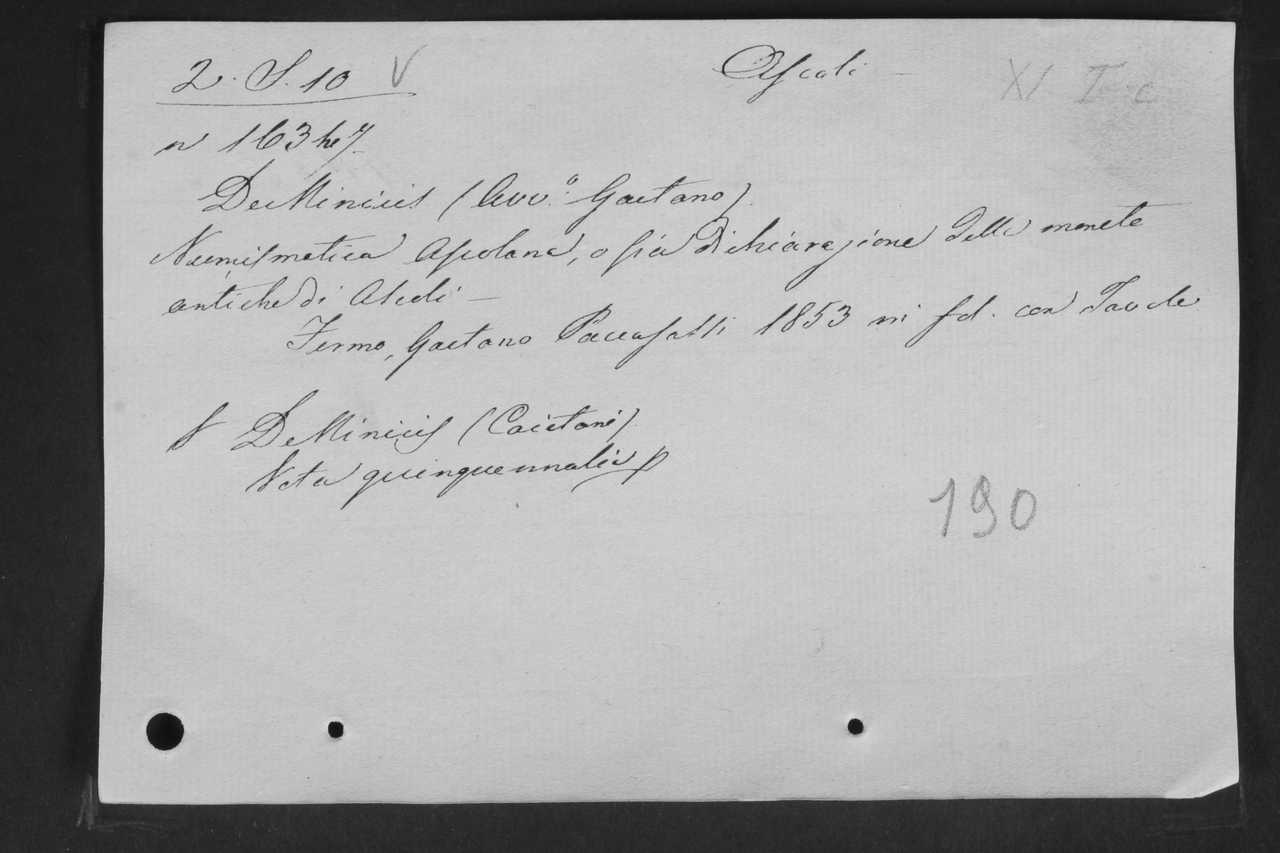 2. S. 10 V
Ascoli —
XI I c
n 163
De Minicis (Avv.° Gaetano)
Numismatica Ascolana, o sia dichiarazione delle monete
antiche di Ascoli —
Fermo, Gaetano Paccasassi 1853 in fol. con Tavole
De Minicis (Caietani)
Vota quinquennalia
190